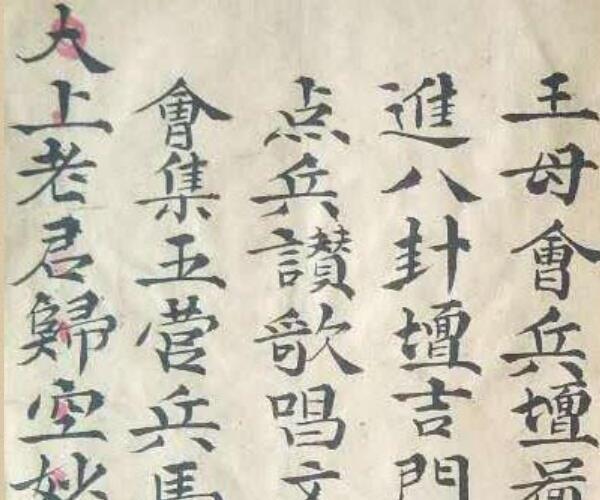 王母會兵壇前
進八卦壇吉門
点兵讃歌唱文
會集五营兵馬
太上老君歸空妙